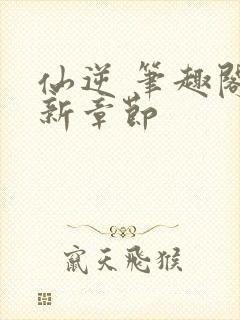 仙逆 笔趣阁
新章节
窜天飞猴